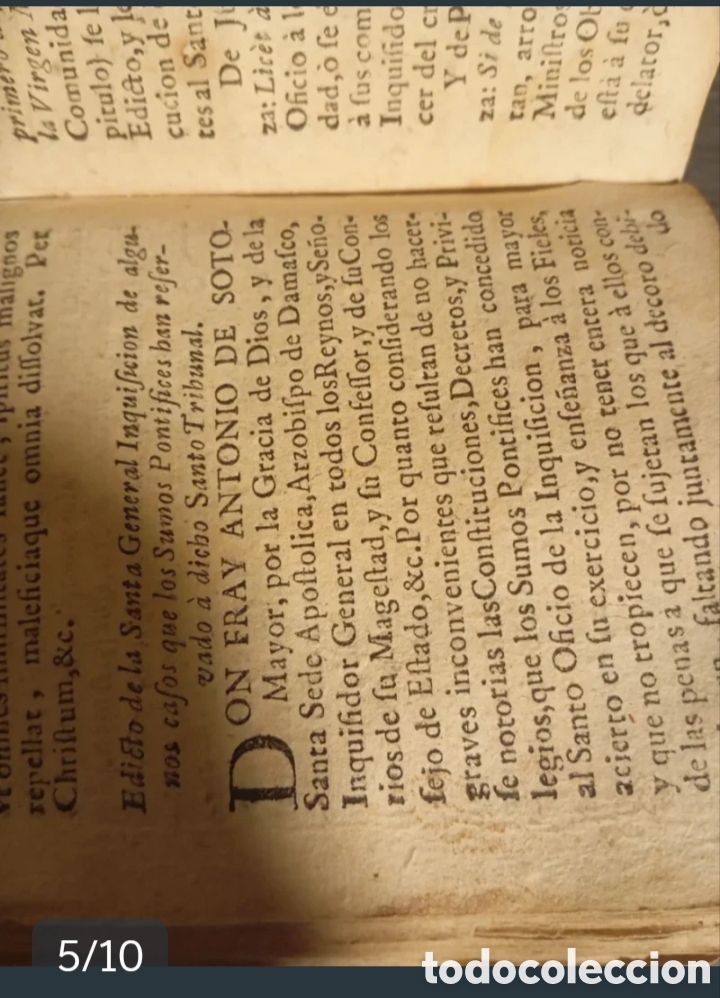 repellat, maleficiaque omnia dissolvat. Per
Christum,&c.
Edicto de la Santa General Inquisicion de algu-
nos casos que los Sumos Pontifices han reser-
vado à dicho Santo Tribunal.
DON FRAY ANTONIO DE SOTO-
Mayor, por la Gracia de Dios, y de la
Santa Sede Apostolica, Arzobispo de Damasco,
Inquisidor General en todos los Reynos, y Seño-
rios de su Magestad, y su Confessor, y de su Con-
sejo de Estado,&c. Por quanto considerando los
graves inconvenientes que resultan de no hacer-
se notorias las Constituciones, Decretos, y Privi-
legios, que los Sumos Pontifices han concedido
al Santo Oficio de la Inquisicion, para mayor
acierto en su exercicio, y enseñanza à los Fieles,
y que no tropiecen, por no tener entera noticia
de las penas a que se sujetan los que à ellos con-
faltando juntamente al decoro debi-
do
primero
la Virgen
Comunida
pitulo) se l
Edicto, y l
cucion de
tes al Sant
De Ju
za: Licèt à
Oficio à l
dad, ò se e
à sus com
Inquisido
cer del cr
Y de p
za: Si de
tan, arro
Ministros
de los Ob
està à su
delator, ò
5/10
todocoleccion